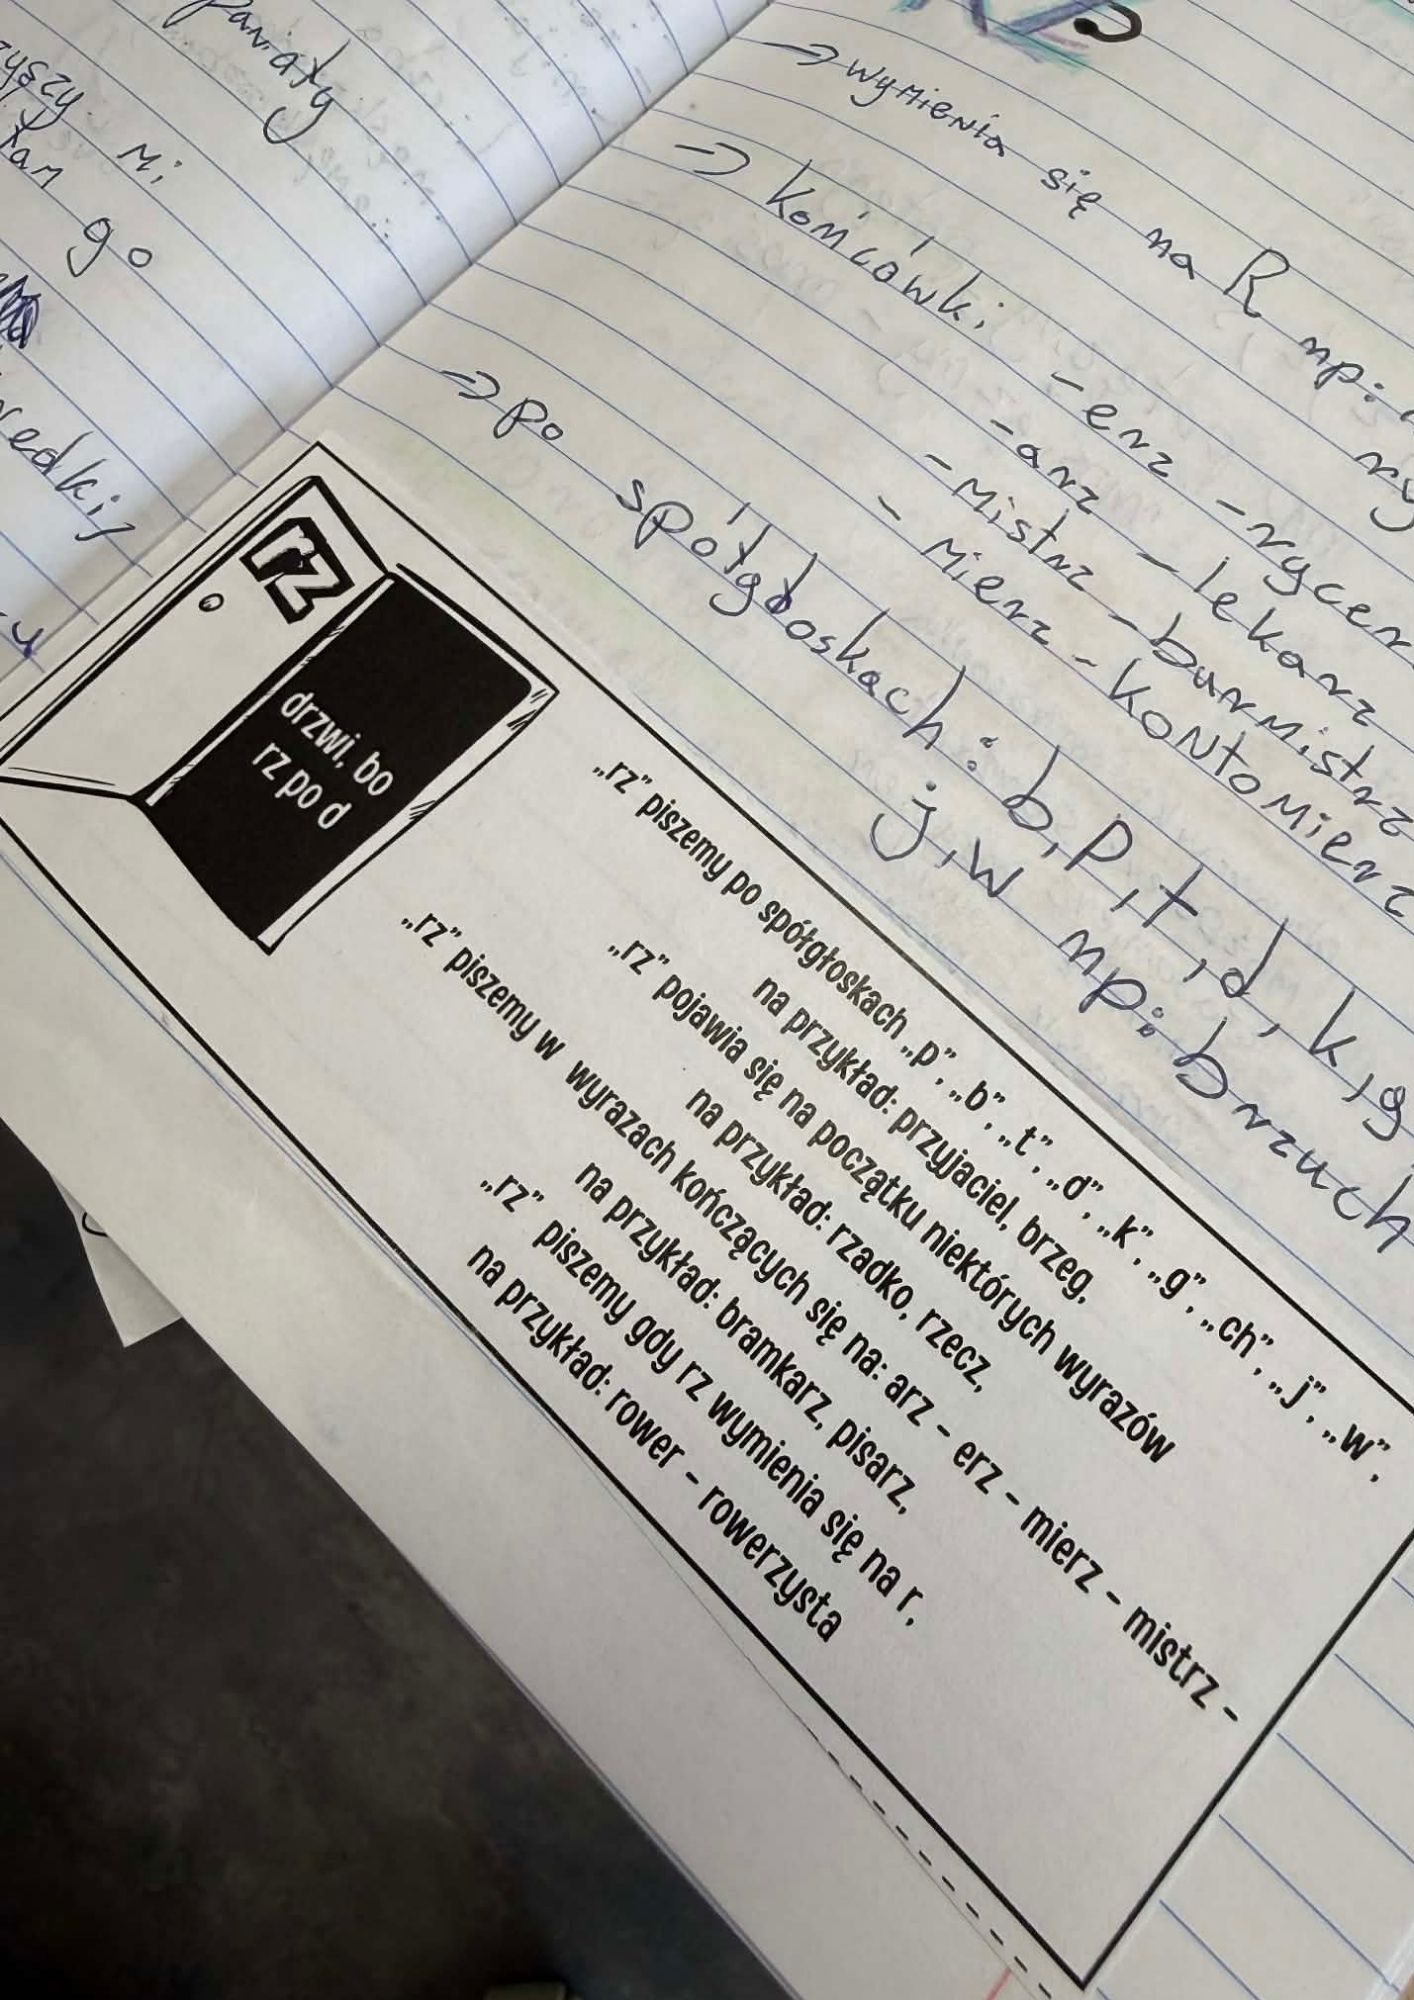 paniały
Mi
go
redki,
→ wymienia się na R np:
→ końcówki -erz - rycerz
-arz - lekarz
-Mistrz - burmistrz
- Mierz - KONtoMierz
→ po spółgłoskach: b, p, t, d, k, g
j, w np: brzuch
rz
drzwi, bo
rz po d
„rz” piszemy po spółgłoskach „p”, „b”, „t”, „d”, „k”, „g”, „ch”, „j”, „w”,
na przykład: przyjaciel, brzeg,
„rz” pojawia się na początku niektórych wyrazów
na przykład: rzadko, rzecz,
„rz” piszemy w wyrazach kończących się na: arz - erz - mierz - mistrz -
na przykład: bramkarz, pisarz,
„rz” piszemy gdy rz wymienia się na r,
na przykład: rower - rowerzysta